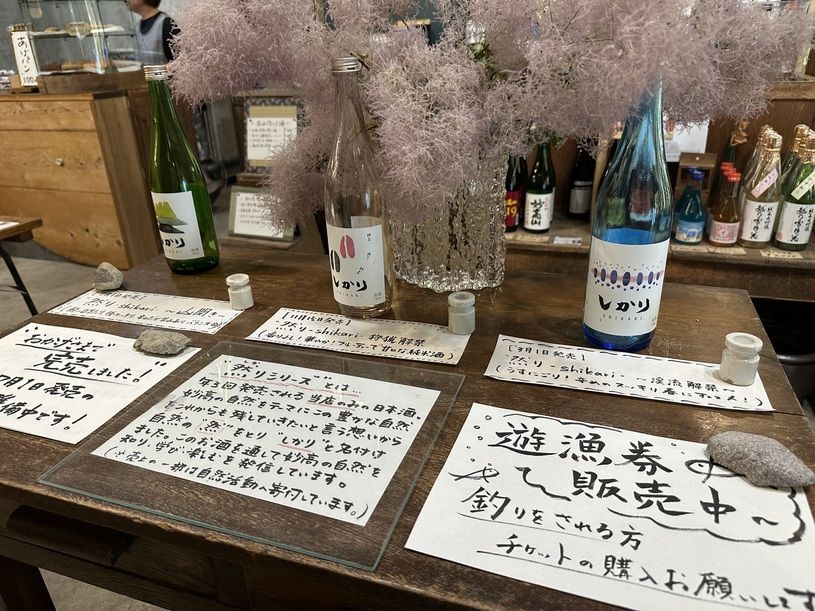 あげパン
100
しかり
SHIKARI
しかり
SHIKARI
しかり
SHIKARI
妙高山
然り-shikari-
【11月15日発売】
然り-shikari- 狩猟解禁
【3月1日発売】
然り-shikari- ～渓流解禁
おかげさまで
完売
しました！
7月1日発売の
準備中です！
しか
"然りシリーズ"とは…
年3回発売される当店のみの日本酒。
妙高の自然をテーマにこの豊かな自然
をこれからも残していきたいと言う想いから
自然の"然"をとり"しかり"と名付け
ました。このお酒を通して妙高の自然を
知り、学び、楽しむを発信しています。
(※売上の一部は自然活動へ寄付しています。)
遊漁券の
販売中～
釣りをされる方
チケットの購入お願いします